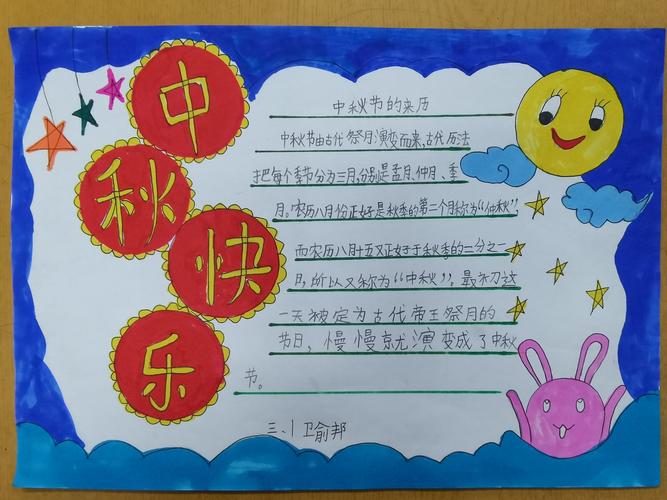 中
秋
快
乐
中秋节的来历
中秋节由古代祭月演变而来,古代历法
把每个季节分为三月,分别是孟月、仲月、季
月。农历八月份正好是秋季的第二个月称为“仲秋”,
而农历八月十五又正好于秋季的二分之一
日,所以又称为“中秋”。最初这
一天被定为古代帝王祭月的
节日,慢慢就演变成了中秋
节。
三、1 卫俞邦